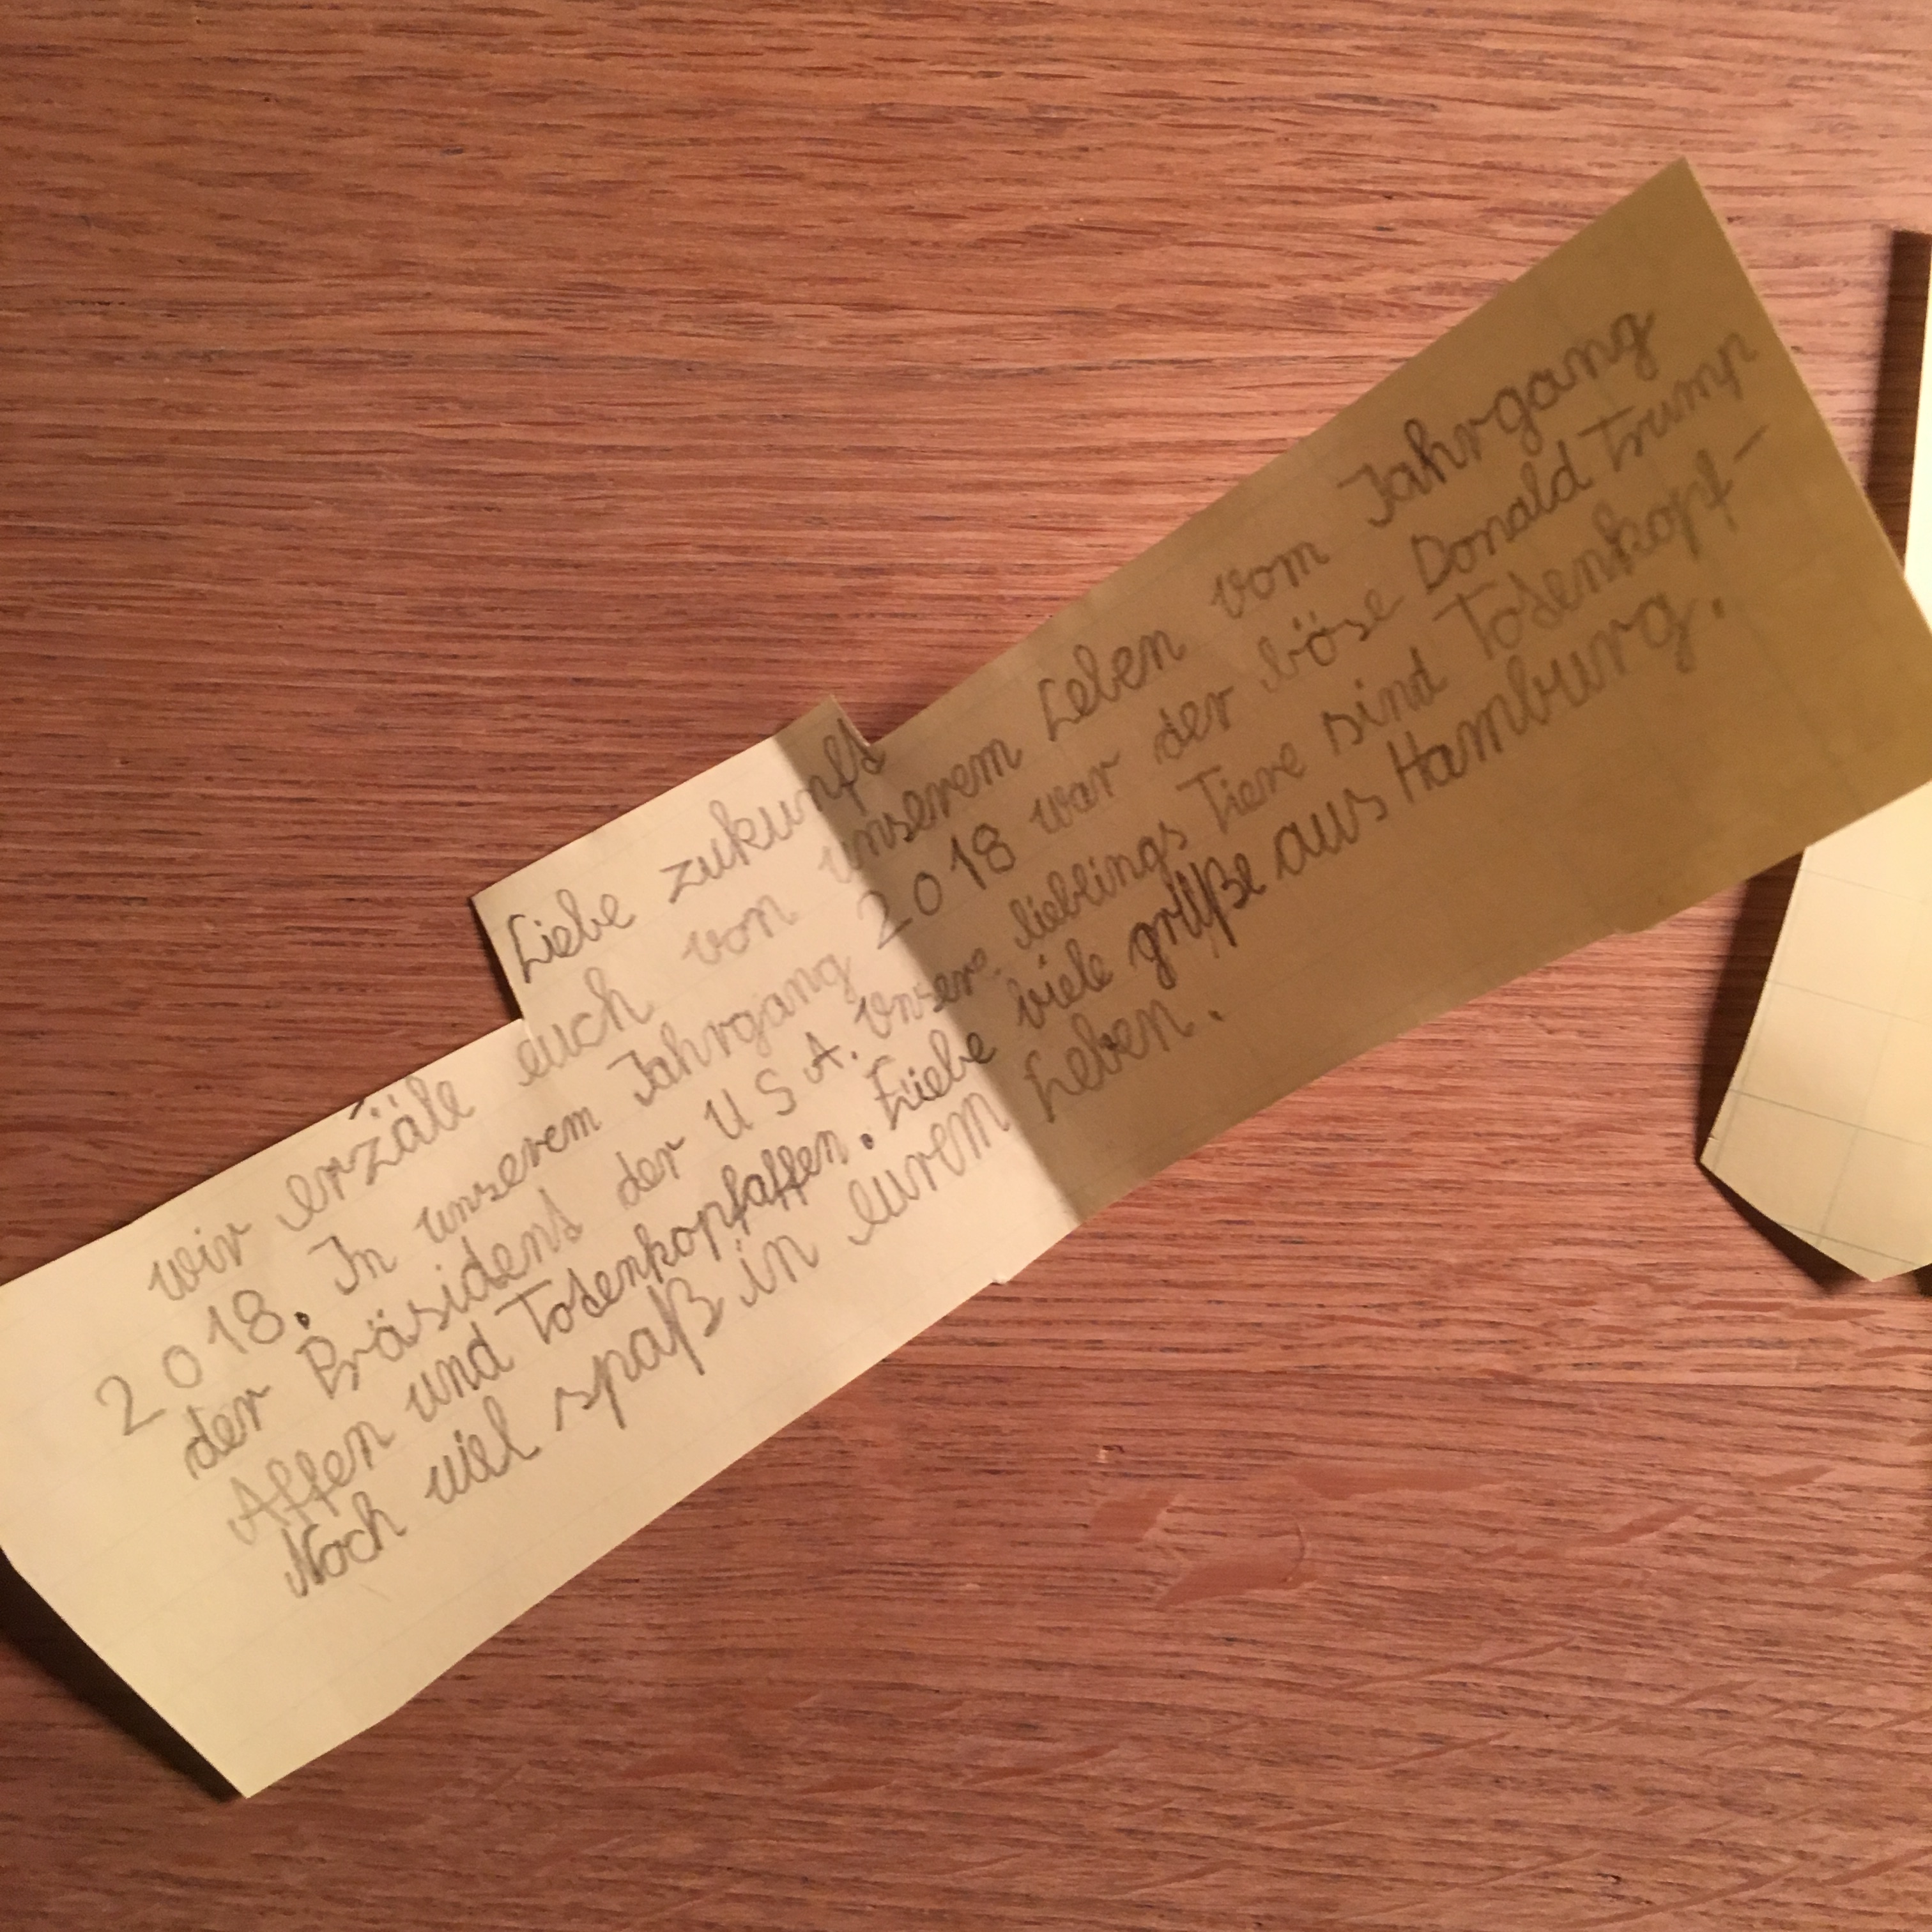 Liebe zukunft
wir erzäle euch von unserem Leben vom Jahrgang
2018. In unserem Jahrgang 2018 war der böse Donald Trump
der Präsident der USA. Unsere lieblings Tiere sind Totenkopf-
Affen und Totenkopfaffen. Liebe viele grüße aus Hamburg.
Noch viel spaß in eurem Leben.